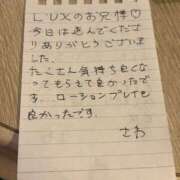 LUXのお兄様♡
今日は遊んでくださ
りありがとうございま
した。
たくさん気持ち良くな
ってもらえて良かったで
す。ローションプレイも
良かったです。
さわ